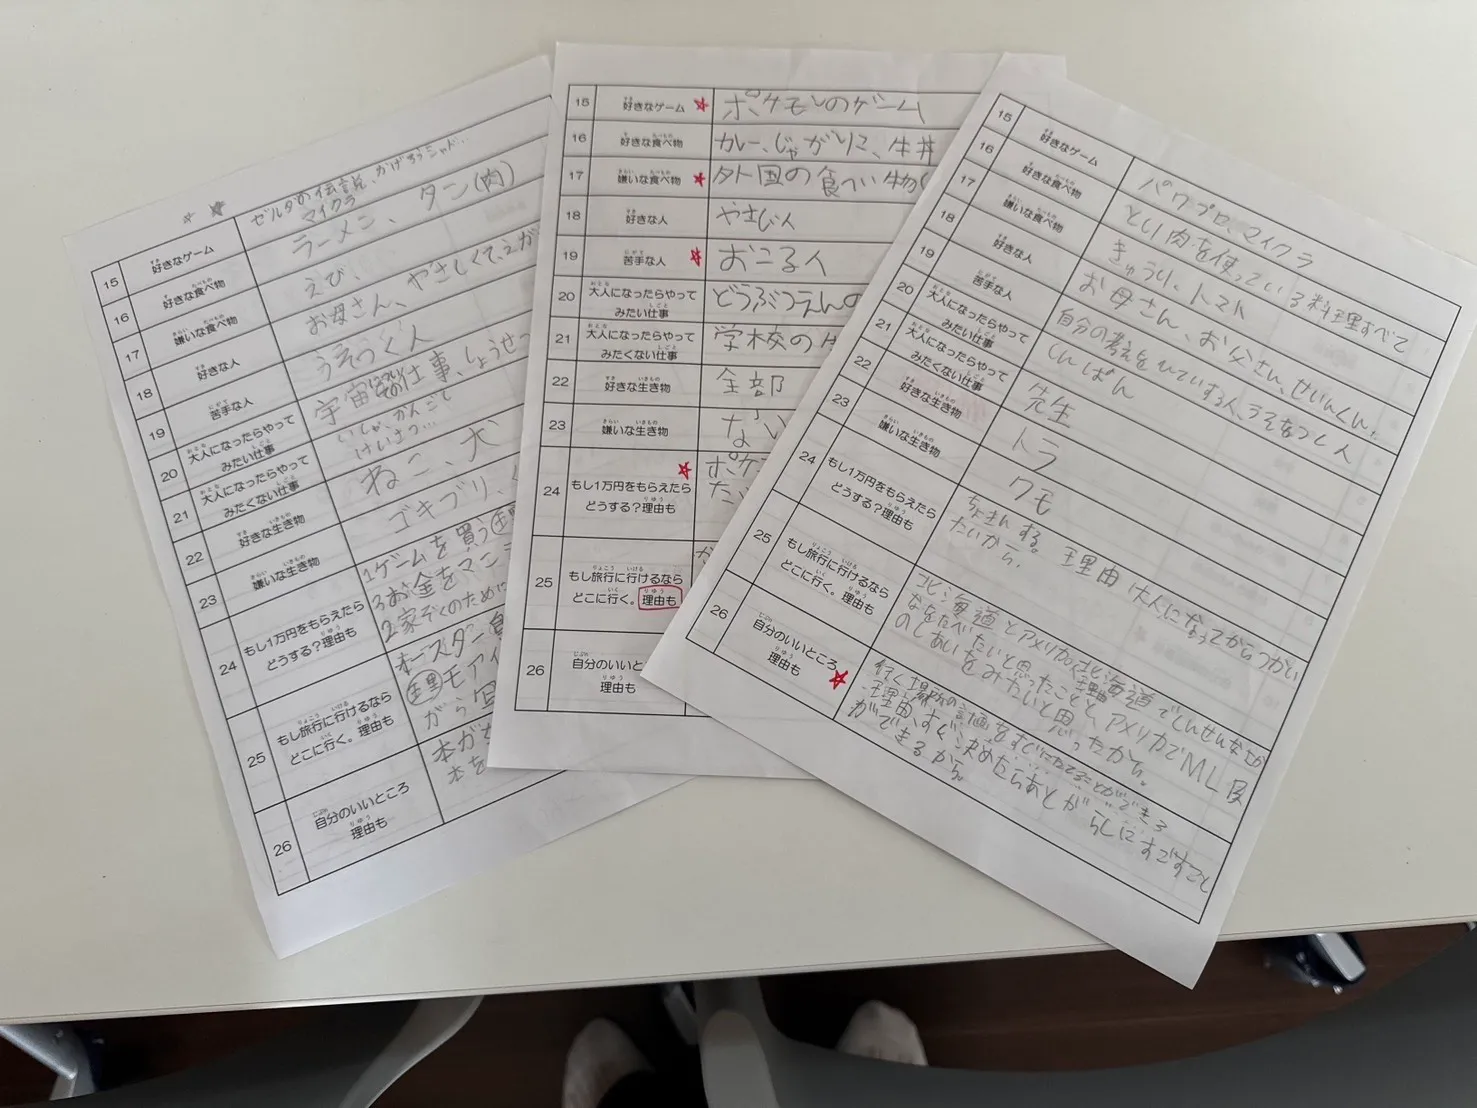 15 好きなゲーム ゼルダの伝説、かげろうデイ
マイクラ
16 好きな食べ物 ラーメン、タン(肉)
17 嫌いな食べ物 えび、
18 好きな人 お母さん、やさしくて、
19 苦手な人 うそつく人
20 大人になったらやって
みたい仕事
宇宙の仕事、しょうせつ
21 大人になったらやって
みたくない仕事
いしゃ、かんごし
けいさつ…
22 好きな生き物 ねこ、犬
23 嫌いな生き物 ゴキブリ、
24 もし1万円をもらえたら
どうする?理由も
1ゲームを買う
3お金を
2家ぞくのために
25 もし旅行に行けるなら
どこに行く。理由も
モアイ
26 自分のいいところ
理由も
本が
本を
15 好きなゲーム ポケモンのゲーム
16 好きな食べ物 カレー、じゃがりこ、牛丼
17 嫌いな食べ物 外国の食べい物
18 好きな人 やさしい人
19 苦手な人 おこる人
20 大人になったらやって
みたい仕事
どうぶつえんの
21 大人になったらやって
みたくない仕事
学校の
22 好きな生き物 全部
23 嫌いな生き物 ない
24 もし1万円をもらえたら
どうする?理由も
ポケ
25 もし旅行に行けるなら
どこに行く。理由も
26 自分のいいとこ
理由も
15 好きなゲーム パワプロ、マイクラ
16 好きな食べ物 とり肉を使っている料理すべて
17 嫌いな食べ物 きゅうり、トマト
18 好きな人 お母さん、お父さん、せいんくん、
19 苦手な人 自分の考えをひていする人、うそをつく人
20 大人になったらやって
みたい仕事
しんぱん
21 大人になったらやって
みたくない仕事
先生
22 好きな生き物 トラ
23 嫌いな生き物 クモ
24 もし1万円をもらえたら
どうする?理由も
ちょきんする。理由は大人になってからつかい
たいから。
25 もし旅行に行けるなら
どこに行く。理由も
北海道とアメリカ。理由は北海道でしんせんな
をたべたいと思ったことと、アメリカでMLB
のしあいをみたいと思ったから。
26 自分のいいところ
理由も
行く場所の計画をすぐにたてることができる
理由、すぐ決めたらあとがらくにすごすこと
ができるから